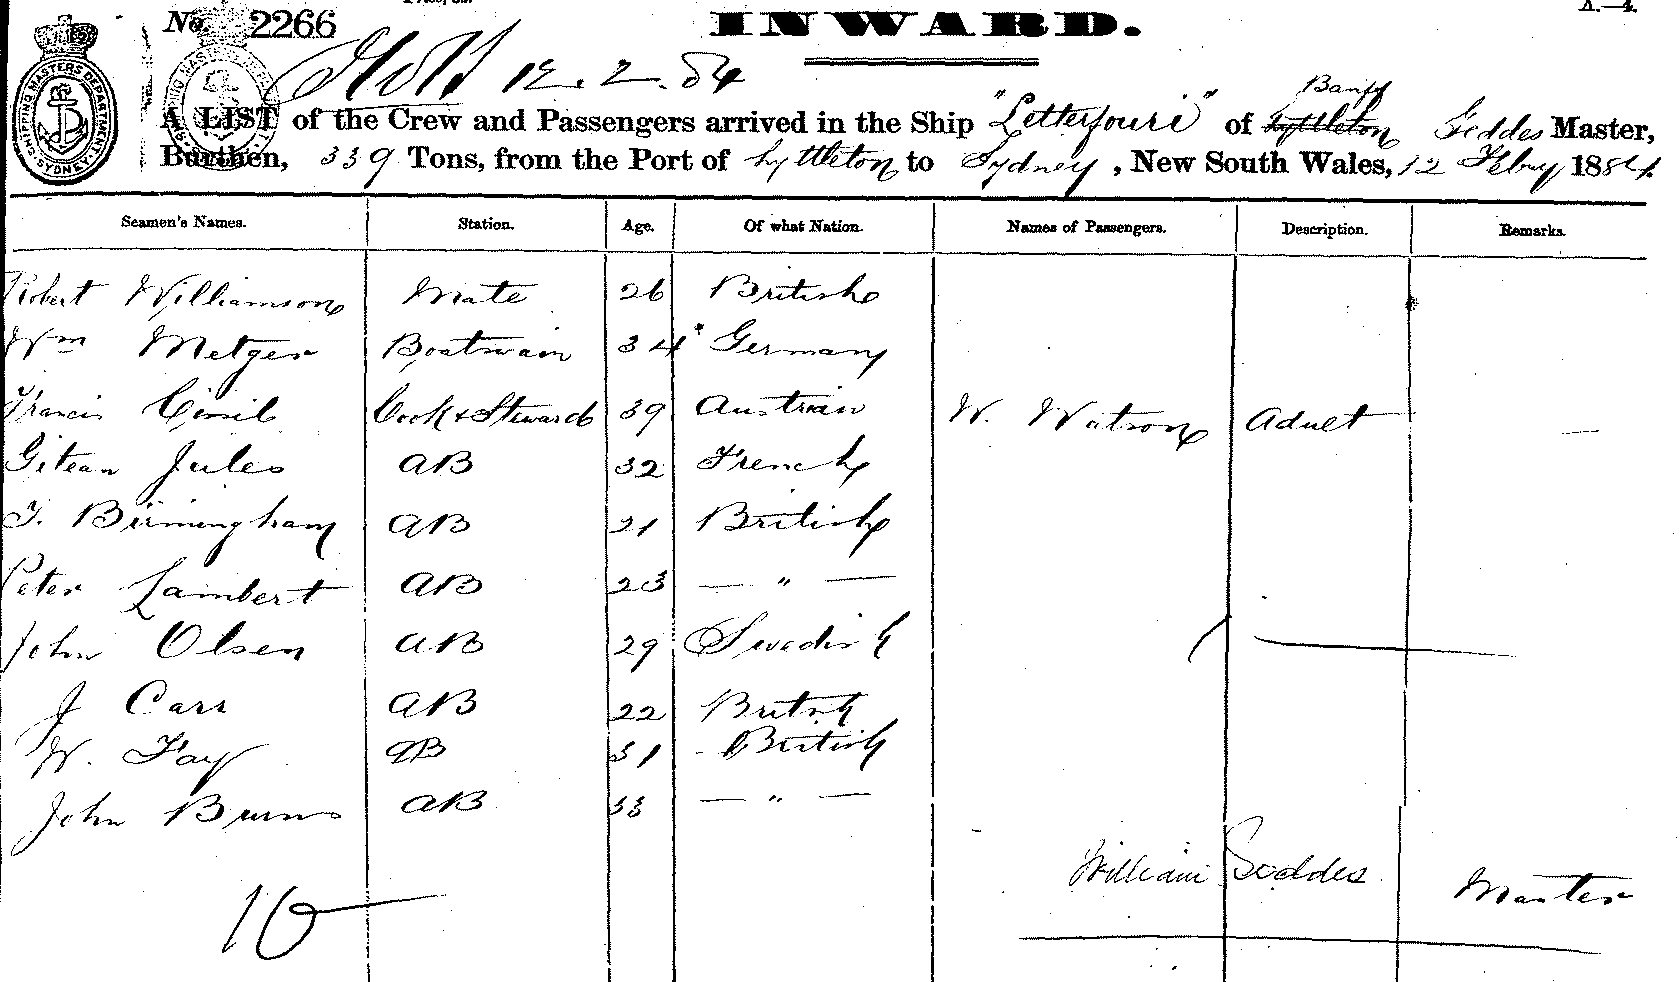 No. 2266
INWARD.
A.—4.
SHIPPING MASTERS DEPARTMENT SYDNEY
12.2.84
Banff
A LIST of the Crew and Passengers arrived in the Ship "Letterfourie" of Lyttleton Geddes Master,
Burthen, 339 Tons, from the Port of Lyttleton to Sydney, New South Wales, 12 Febry 1884.
Seamen's Names. Station. Age. Of what Nation. Names of Passengers. Description. Remarks.
Robert Williamson Mate 26 British
Wm Metger Boatswain 34 Germany
Francis Cook & Steward 39 Austrian W. Watson Adult —
Gitean Jules AB 32 French
T. Birmingham AB 21 British
Peter Lambert AB 23 — " —
John Olsen AB 29 Swedish
J Carr AB 22 British
W. Fay AB 31 British
John Burns AB 33 — " —
William Geddes Master
10